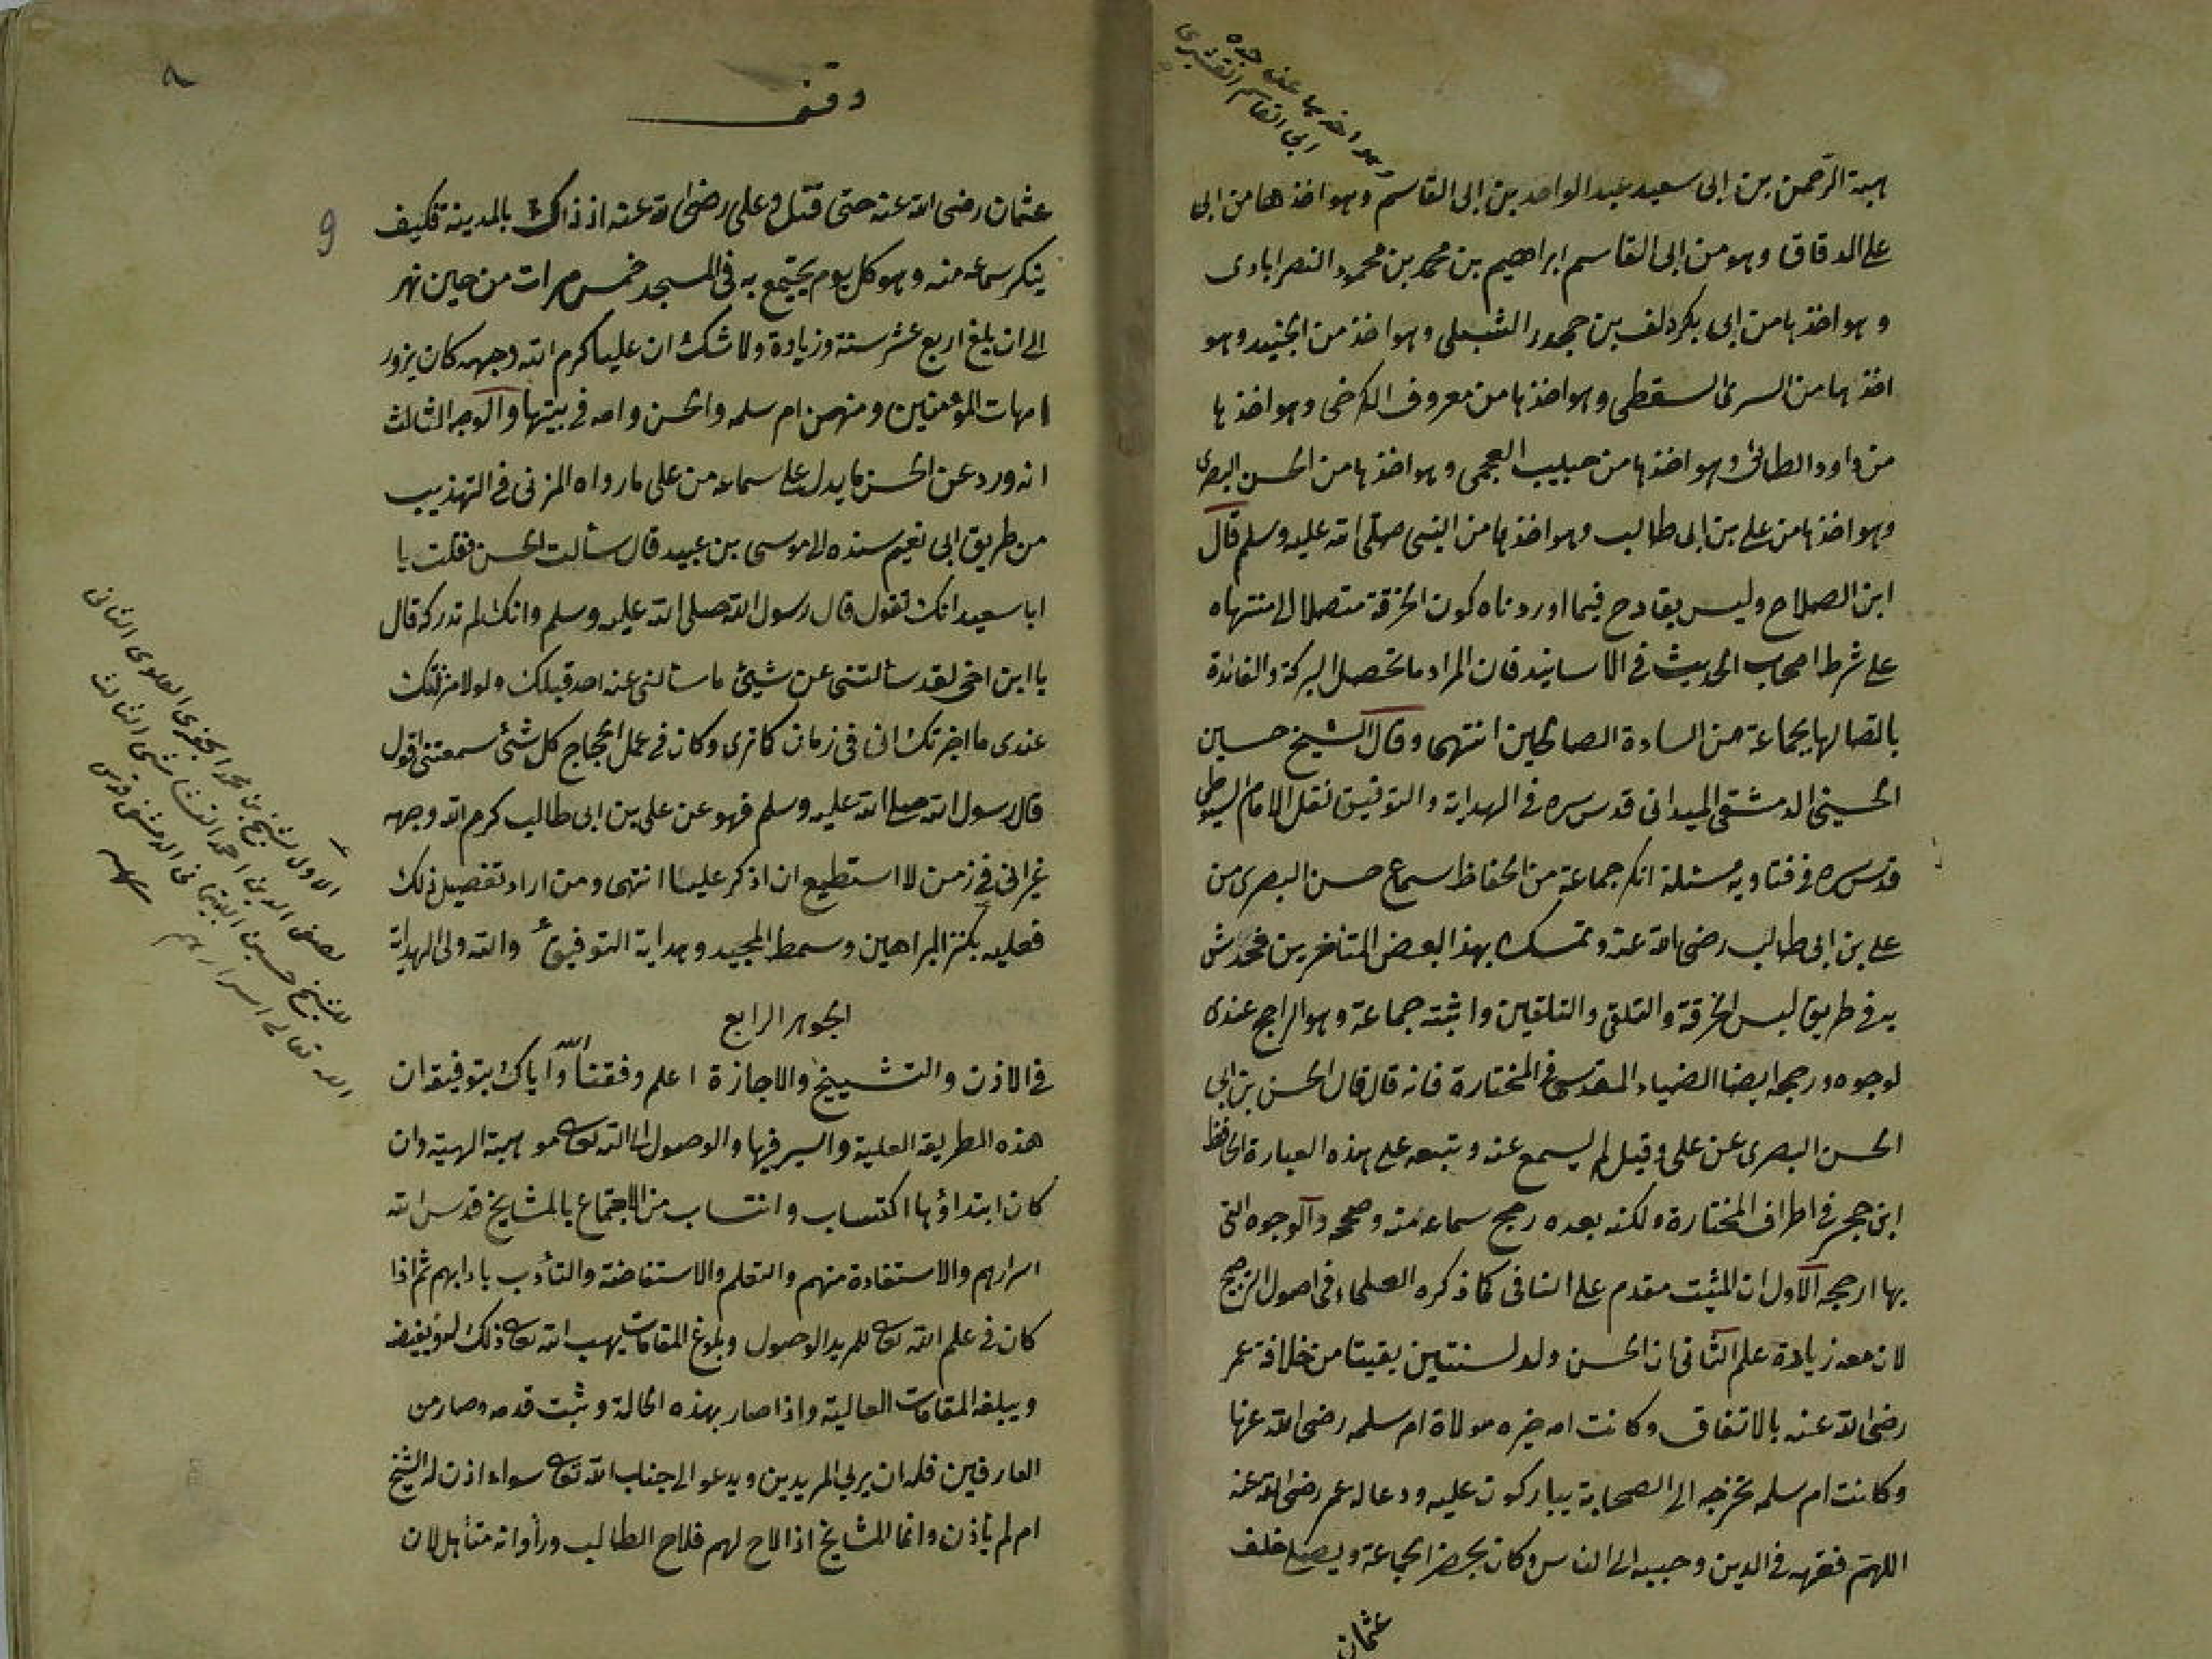 وهو اخذها عن جده
ابى القاسم القشيرى
هبة الرّحمن بن ابى سعيد عبد الواحد بن ابى القاسم وهو اخذها من ابى
على الدقاق وهو من ابى القاسم ابراهيم بن محمد بن محمود النصرابادى
وهو اخذها من ابى بكر دلف بن جحدر الشبلى وهو اخذ من الجنيد وهو
اخذها من السرى السقطى وهو اخذها من معروف الكرخى وهو اخذها
من داود الطائى وهو اخذها من حبيب العجمى وهو اخذها من الحسن البصرى
وهو اخذها من على بن ابى طالب وهو اخذها من النبى صلى الله عليه وسلم قال
ابن الصلاح وليس بقادح فيما اوردناه كون الخرقة متصلا الى منتهاه
على شرط اصحاب الحديث فى الاسانيد فان المراد ما تحصل البركة والفائدة
باتصالها بجماعة من السادة الصالحين انتهى وقال الشيخ حسين
الحسينى الدمشقى الميدانى قدس سره فى الهداية والتوفيق نقل الامام السيوطى
قدس سره فى فتاويه مسئلة انكر جماعة من الحفاظ سماع حسن البصرى من
على بن ابى طالب رضى الله عنه وتمسك بهذا بعض المتاخرين فخدش
به فى طريق لبس الخرقة والتلقى والتلقين واثبته جماعة وهو الراجح عندى
لوجوه ورجحه ايضا الضياء المقدسى فى المختارة فانه قال قال الحسن بن ابى
الحسن البصرى عن على وقيل لم يسمع عنه وتبعه على هذه العبارة الحافظ
ابن حجر فى اطراف المختارة ولكنه بعده رجح سماعه منه وصححه والوجوه التى
بها ارجحه الاول ان المثبت مقدم على النافى كما ذكره العلماء فى اصول الترجيح
لان معه زيادة علم الثانى ان الحسن ولد لسنتين بقيتا من خلافة عمر
رضى الله عنه بالاتفاق وكانت امه خيره مولاة ام سلمه رضى الله عنها
وكانت ام سلمه تخرجه الى الصحابة يباركون عليه ودعا له عمر رضى الله عنه
اللهم فقهه فى الدين وحببه الى الناس وكان يحضر الجماعة ويصلى خلف
عثمان
وقف
٨
9
عثمان رضى الله عنه حتى قتل وعلى رضى الله عنه اذ ذاك بالمدينة فكيف
ينكر سماعه منه وهو كل يوم يجتمع به فى المسجد خمس مرات من حين
الى ان بلغ اربع عشر سنة وزيادة ولا شك ان عليا كرم الله وجهه كان يزور
امهات المؤمنين ومنهن ام سلمه والحسن وامه فى بيتها والوجه الثالث
انه ورد عن الحسن ما يدل على سماعه من على ما رواه المزنى فى التهذيب
من طريق ابى نعيم سنده الى موسى بن عبيد قال سألت الحسن فقلت يا
ابا سعيد انك تقول قال رسول الله صلى الله عليه وسلم وانك لم تدركه قال
يا ابن اخى لقد سألتنى عن شيئ ما سألنى عنه احد قبلك ولولا منزلتك
عندى ما اخبرتك انى فى زمان كما ترى وكان فى عمل الحجاج كل شئ سمعتنى اقول
قال رسول الله صلى الله عليه وسلم فهو عن على بن ابى طالب كرم الله وجهه
غير انى فى زمن لا استطيع ان اذكر عليا انتهى ومن اراد تفصيل ذلك
فعليه بكنز البراهين وسمط المجيد وهداية التوفيق والله ولى الهداية
الجوهر الرابع
فى الاذن والتشييخ والاجازة اعلم وفقنا الله واياك بتوفيقه ان
هذه الطريقة العلية والسير فيها والوصول الى الله تعالى موهبة الهية وان
كان ابتداؤها اكتساب وانتساب من الاجتماع بالمشايخ قدس الله
اسرارهم والاستفادة منهم والتعلم والاستفاضة والتأدب بادابهم ثم اذا
كان فى علم الله تعالى للمريد الوصول وبلوغ المقامات يهب الله تعالى ذلك
ويبلغه المقامات العالية واذا صار بهذه الحالة وثبت قدمه وصار من
العارفين فله ان يربى المريدين ويدعو الى جناب الله تعالى سواء اذن له الشيخ
ام لم يأذن وانما المشايخ اذا لاح لهم فلاح الطالب ورأوا انه متأهل لان
الاول لشيخ بن محمد الجفرى العلوى الثانى
لصفى الدين احمد القشاشى الثالث
للشيخ حسين الدمشقى قدس
الله تعالى اسرارهم